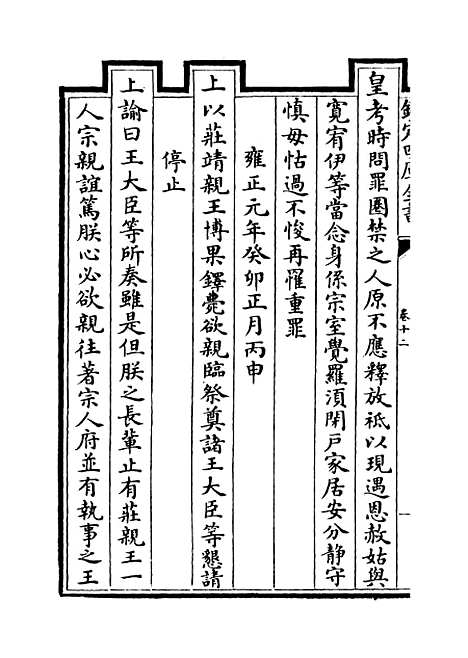 欽定四庫全書
卷十二
皇考時問罪圈禁之人原不應釋放祗以現遇恩赦姑與
寛宥伊等當念身係宗室覺羅須閑戸家居安分靜守
慎毋怙過不悛再罹重罪
雍正元年癸卯正月丙申
上以莊靖親王博果鐸薨欲親臨祭奠諸王大臣等懇請
停止
上諭曰王大臣等所奏雖是但朕之長輩止有莊親王一
人宗親誼篤朕心必欲親往著宗人府並有執事之王